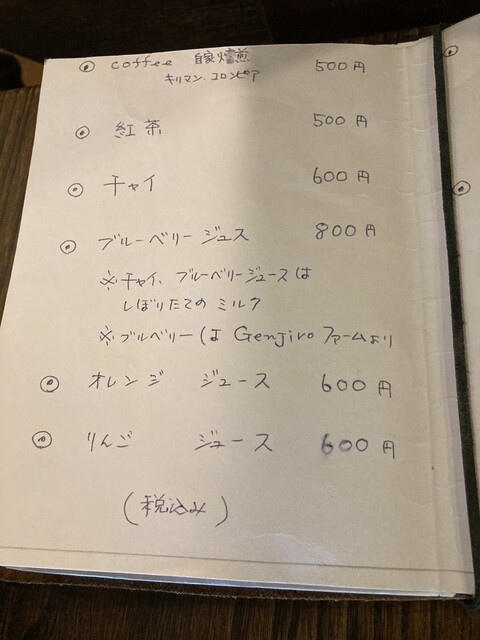 ◉ coffee 自家焙煎 500円
キリマン.コロンビア
◉ 紅茶 500円
◉ チャイ 600円
◉ ブルーベリージュス 800円
※チャイ、ブルーベリージュースは
しぼりたてのミルク
※ブルベリーは Genjiro ファームより
◉ オレンジ ジュース 600円
◉ りんご ジュース 600円
(税込み)